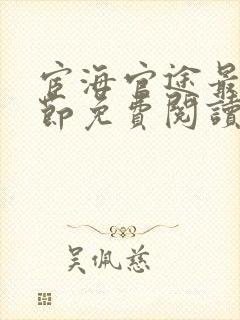 宦海官途最
節免費閱讀
吳佩慈